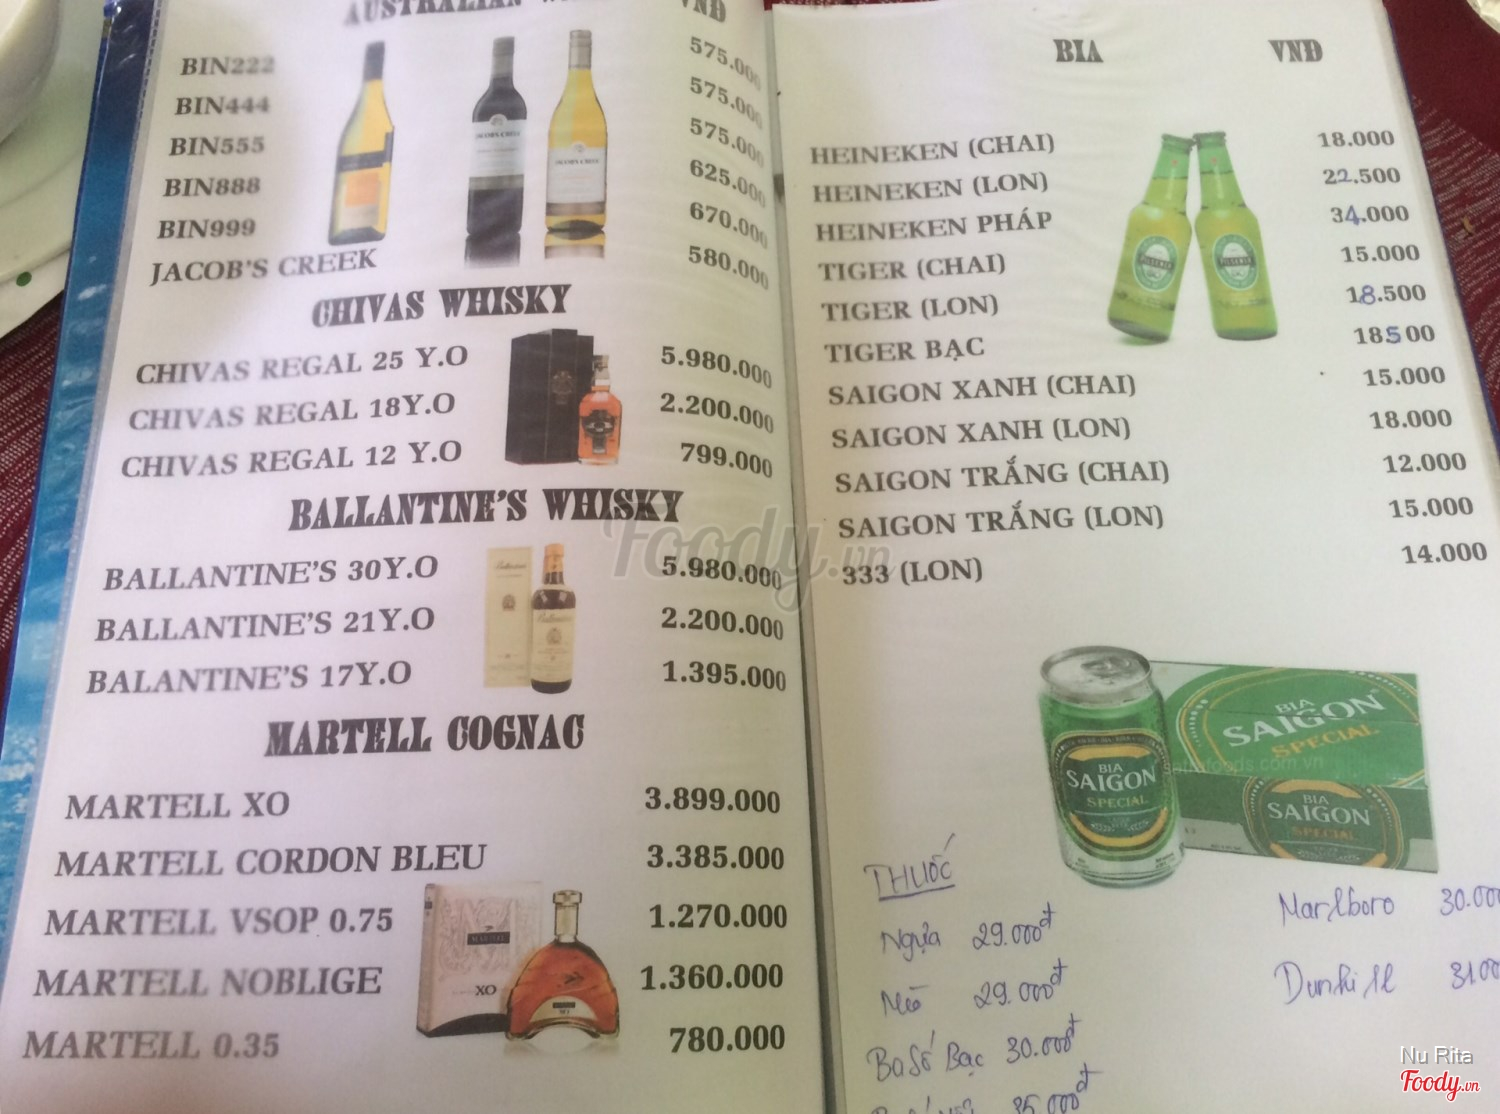 AUSTRALIAN VNĐ
BIN222 575.000
BIN444 575.000
BIN555 575.000
BIN888 625.000
BIN999 670.000
JACOB'S CREEK 580.000
CHIVAS WHISKY
CHIVAS REGAL 25 Y.O 5.980.000
CHIVAS REGAL 18Y.O 2.200.000
CHIVAS REGAL 12 Y.O 799.000
BALLANTINE'S WHISKY
BALLANTINE'S 30Y.O 5.980.000
BALLANTINE'S 21Y.O 2.200.000
BALANTINE'S 17Y.O 1.395.000
MARTELL COGNAC
MARTELL XO 3.899.000
MARTELL CORDON BLEU 3.385.000
MARTELL VSOP 0.75 1.270.000
MARTELL NOBLIGE 1.360.000
MARTELL 0.35 780.000
XO
BIA VNĐ
HEINEKEN (CHAI) 18.000
HEINEKEN (LON) 22.500
HEINEKEN PHÁP 34.000
TIGER (CHAI) 15.000
TIGER (LON) 18.500
TIGER BẠC 18500
SAIGON XANH (CHAI) 15.000
SAIGON XANH (LON) 18.000
SAIGON TRẮNG (CHAI) 12.000
SAIGON TRẮNG (LON) 15.000
333 (LON) 14.000
BIA
SAIGON
SPECIAL
BIA
SAIGON
SPECIAL
BIA
SAIGON
SPECIAL
THUỐC
Ngựa 29.000đ
Mèo 29.000đ
Ba Số Bạc 30.000đ
35.000đ
Marlboro 30.000
Dunhill 31.00
Foody.vn
Nu Rita
Foody.vn